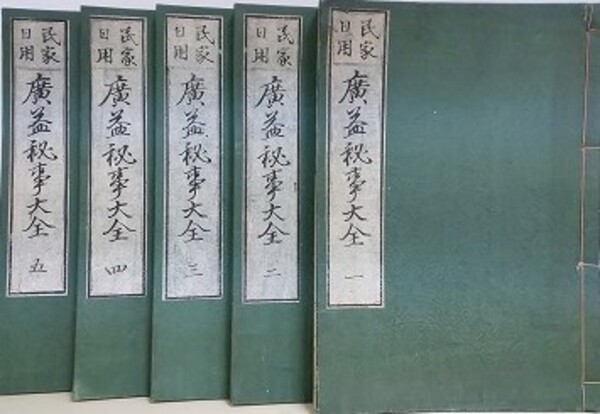 民家
日用
廣益秘事大全
一
民家
日用
廣益秘事大全
二
民家
日用
廣益秘事大全
三
民家
日用
廣益秘事大全
四
民家
日用
廣益秘事大全
五